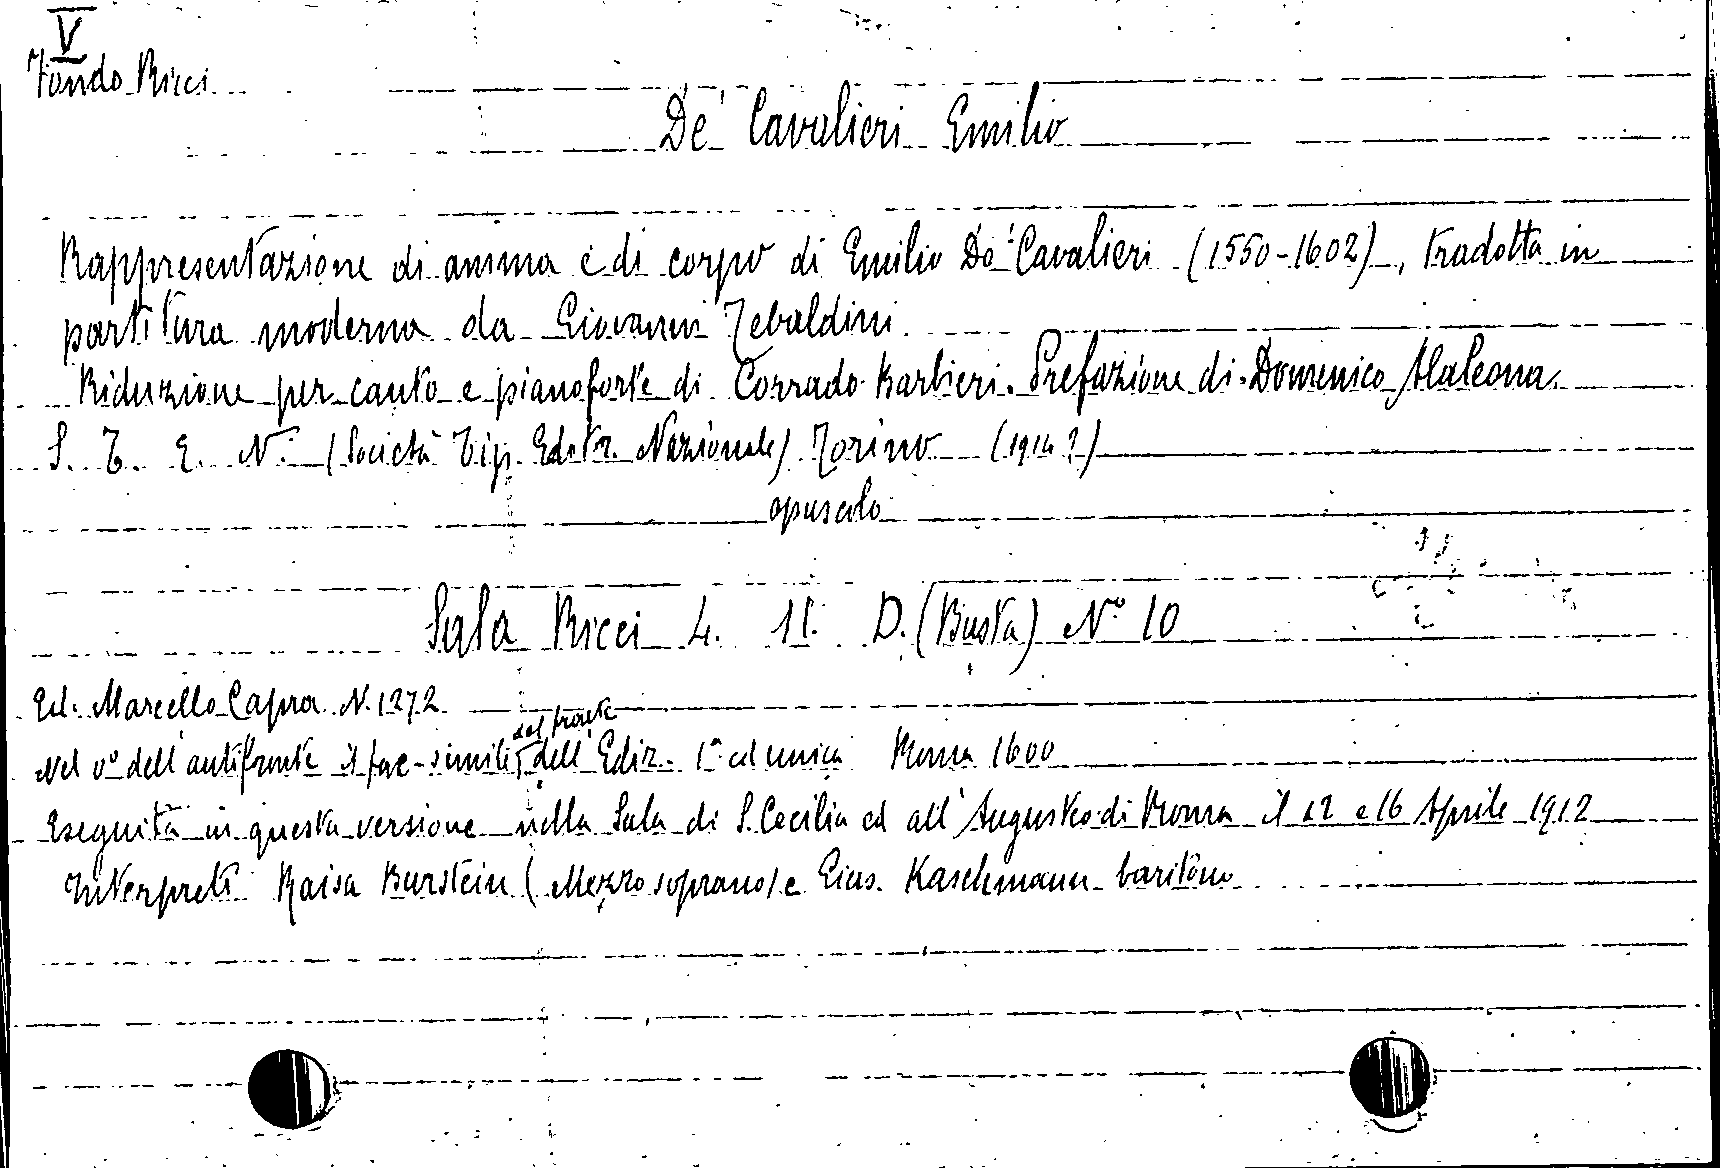 V
Fondo Ricci
De' Cavalieri Emilio
Rappresentazione di anima e di corpo di Emilio De' Cavalieri (1550-1602), tradotta in
partitura moderna da Giovanni Tebaldini.
Riduzione per canto e pianoforte di Corrado Barbieri. Prefazione di Domenico Alaleona.
S. T. E. N. (Società Tip. Editr. Nazionale) Torino (1914?)
opuscolo
Sala Ricci 4. 11. D. (Busta) N° 10
Ed. Marcello Capra N. 1272
del fronte
Nel v° dell'antifronte il fac-simile dell'Ediz. 1ª ed unica Roma 1600
Eseguita in questa versione nella Sala di S. Cecilia ed all'Augusteo di Roma il 12 e 16 Aprile 1912
Interpreti Raisa Burstein (Mezzo soprano) e Gius. Kaschmann baritono